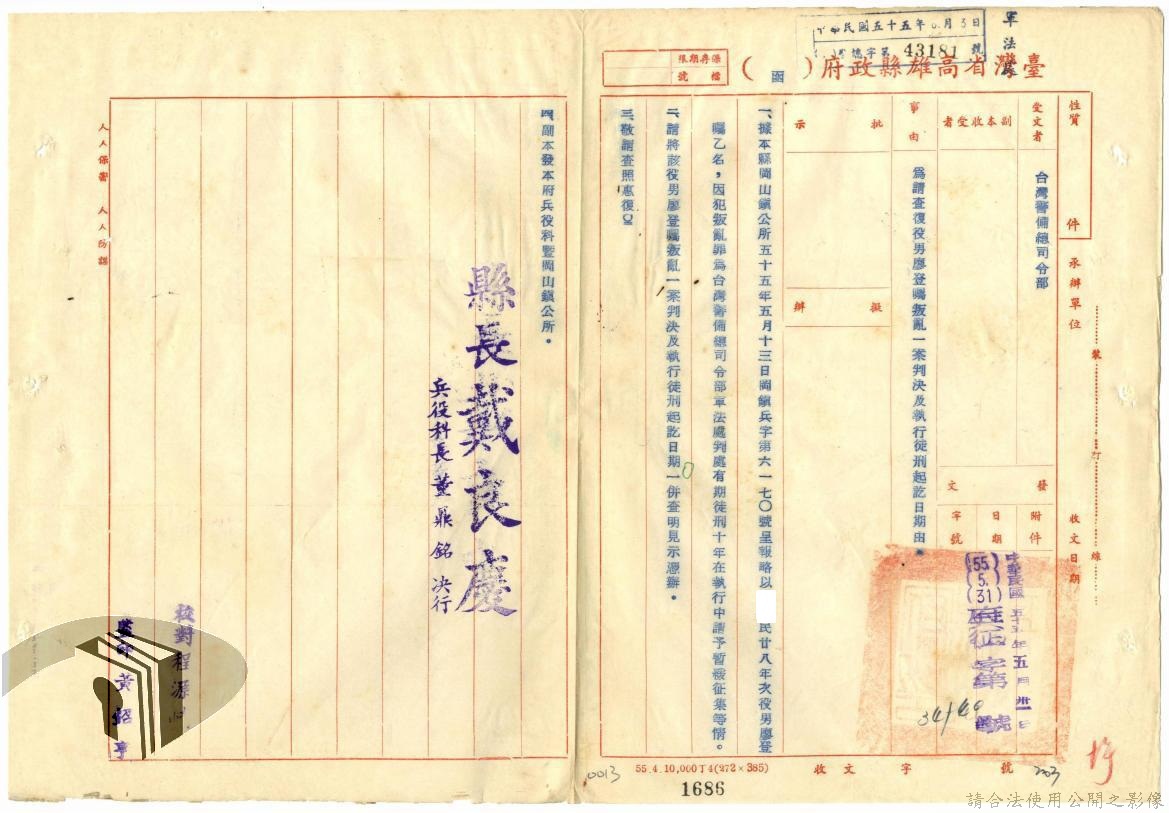 中華民國五十五年6月3日
字第43181號
軍法處
臺灣省高雄縣政府（函）
保存期限
檔號
性質
件
受文者
台灣警備總司令部
副本收受者
事由
為請查復役男廖登囑叛亂一案判決及執行徒刑起訖日期由。
批示
擬辦
發文
附件
日期
字號
中華民國五十五年五月卅一日
(55.5.31)府征字第號
34140
承辦單位
收文日期
裝訂線
一、據本縣岡山鎮公所五十五年五月十三日岡鎮兵字第六一七〇號呈報略以　民廿八年次役男廖登
囑乙名，因犯叛亂罪為台灣警備總司令部軍法處判處有期徒刑十年在執行中請予暫緩征集等情。
二、請將該役男廖登囑叛亂一案判決及執行徒刑起訖日期一併查明見示憑辦。
三、敬請查照惠復〇
四、副本發本府兵役科暨岡山鎮公所。
縣長戴良慶
兵役科長董鼎銘決行
校對程源
監印黃紹亨
人人保密　人人防諜
0013
55.4.10,000T4(272×385)
收文字號
203
1686
請合法使用公開之影像